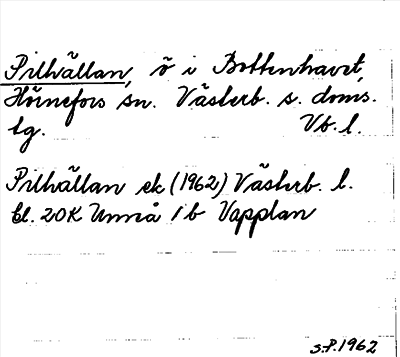 Pilhällan, ö i Bottenhavet,
Hörnefors sn. Västerb. s. doms.
tg. Vb. l.
Pilhällan ek (1962) Västerb. l.
bl. 20K Umeå 1b Vapplan
S.P. 1962